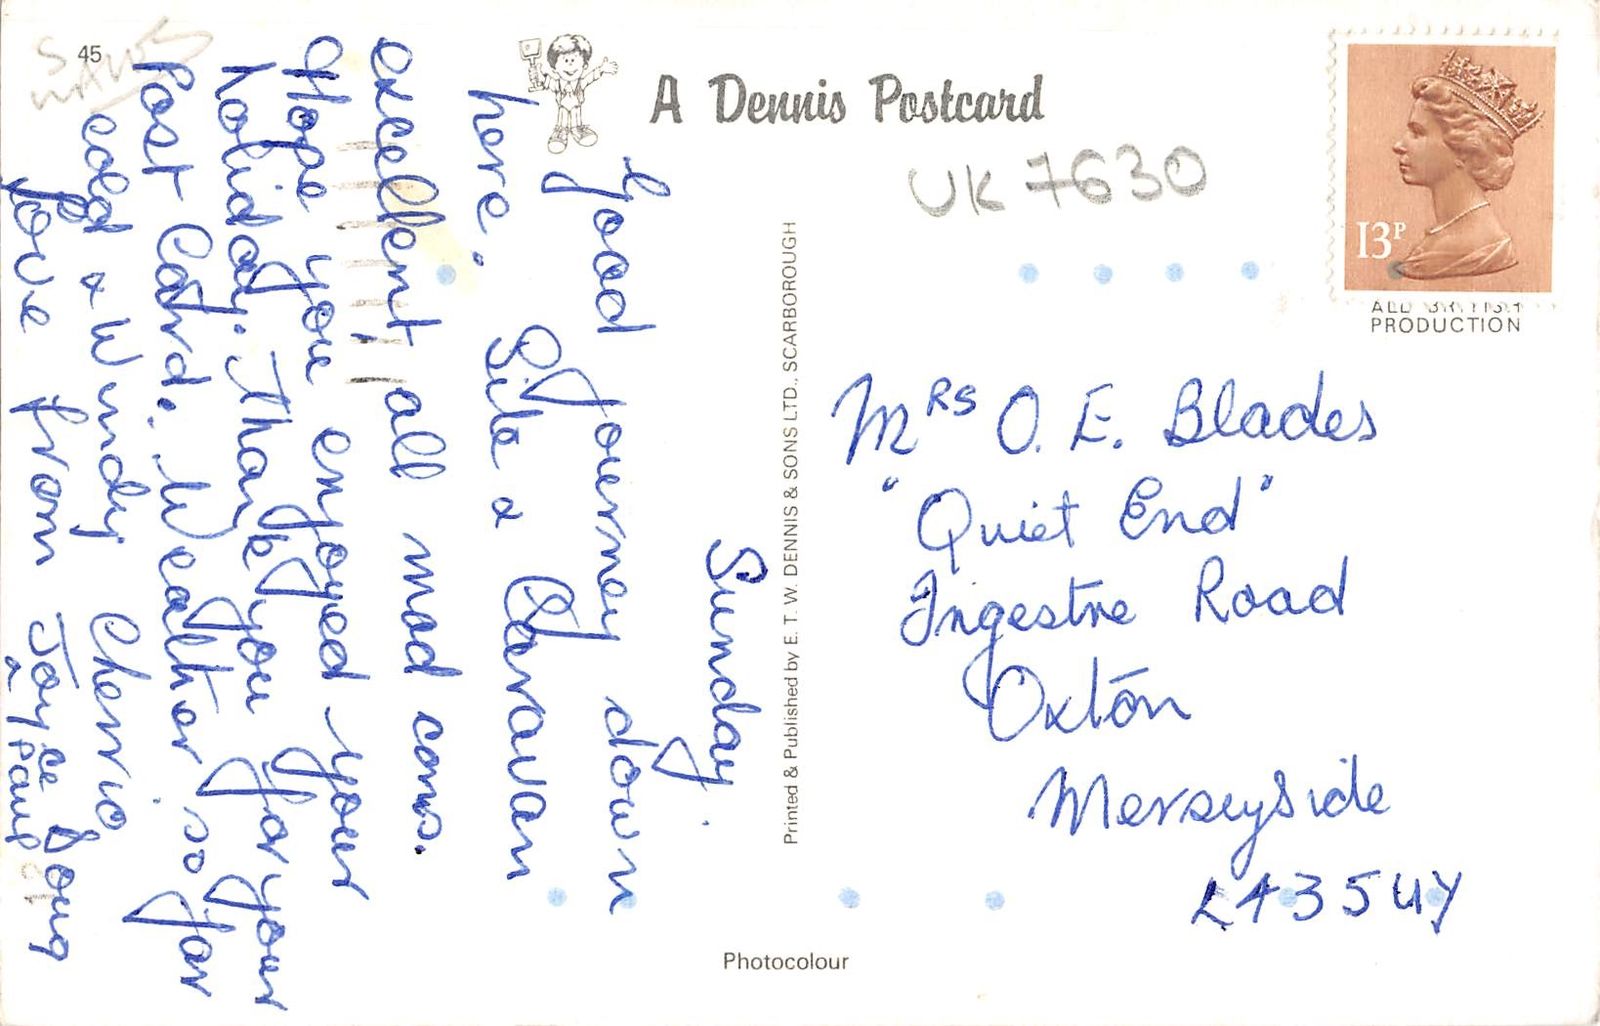 45
SWANS
A Dennis Postcard
UK 7630
13P
ALL BRITISH
PRODUCTION
Sunday.
Good Journey down
here. Site & Caravan
excellent, all mod cons.
Hope you enjoyed your
holiday. Thank you for your
Post Card. Weather so far
cold & Windy Cheerio
love from Joyce Doug
& Paul
Printed & Published by E. T. W. DENNIS & SONS LTD., SCARBOROUGH
Mrs O. E. Blades
"Quiet End"
Ingestre Road
Oxton
Merseyside
L43 5UY
Photocolour